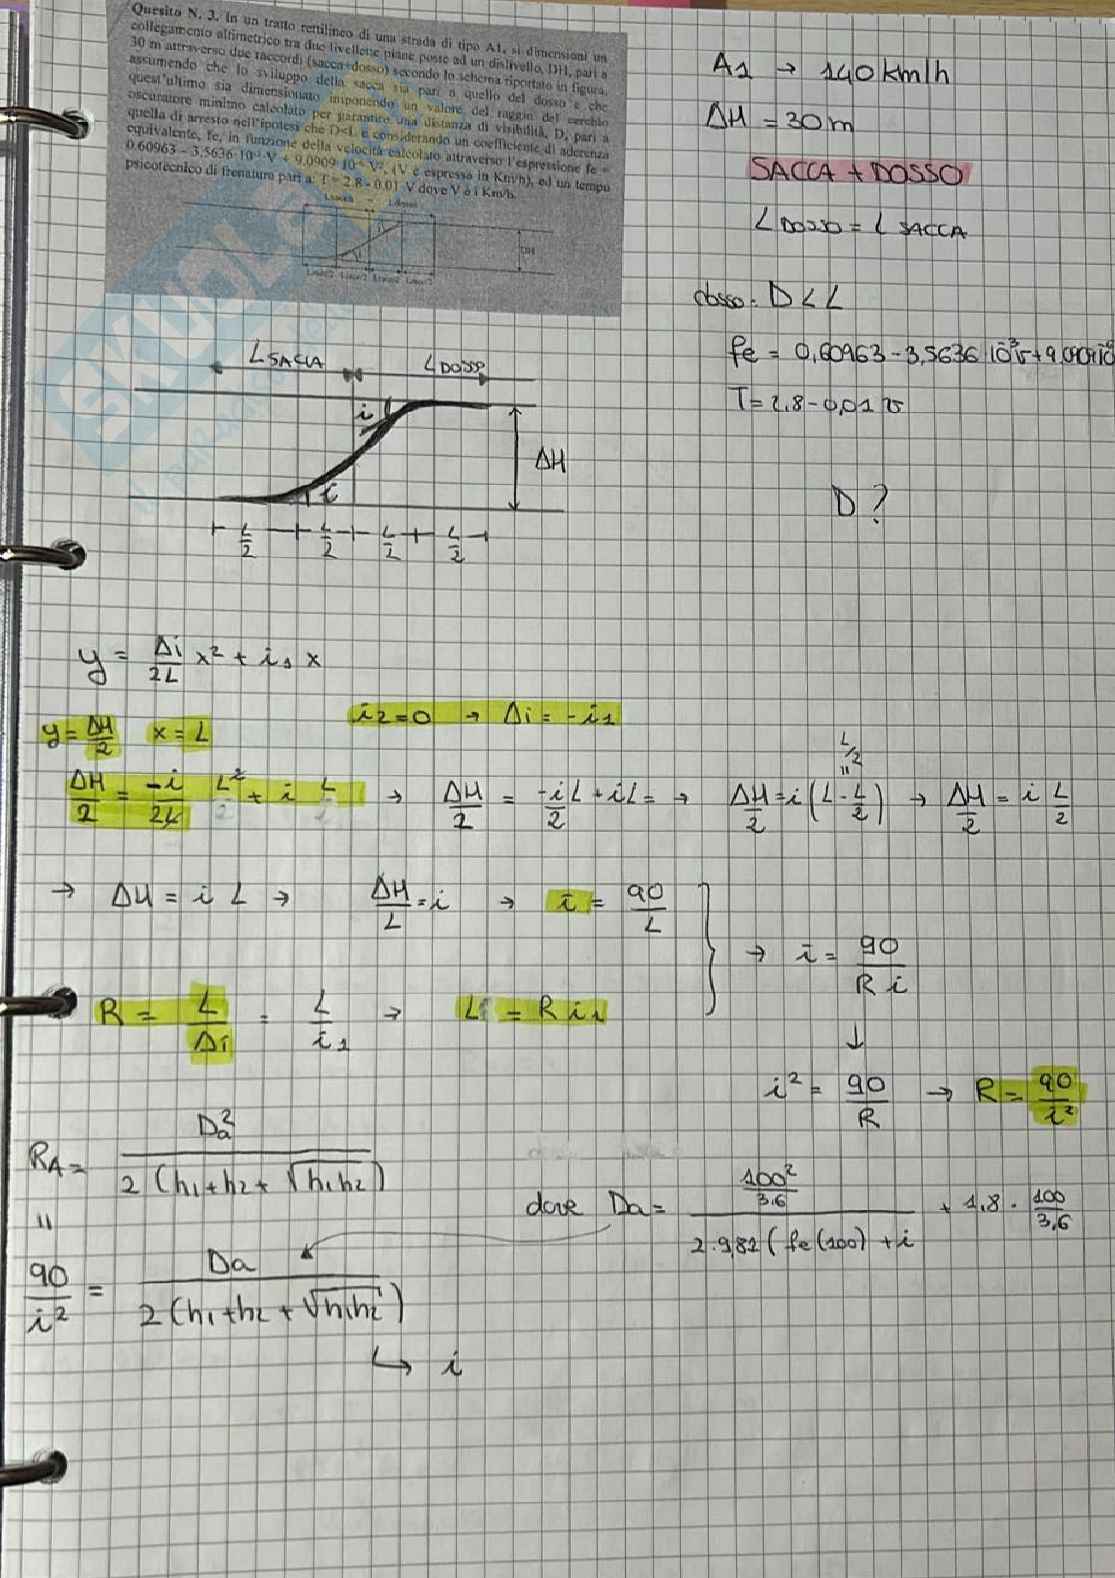 Quesito N. 3. In un tratto rettilineo di una strada di tipo A1, si dimensioni un
collegamento altimetrico tra due livellette piane poste ad un dislivello, DH, pari a
30 m attraverso due raccordi (sacca+dosso) secondo lo schema riportato in figura,
assumendo che lo sviluppo della sacca sia pari a quello del dosso e che
quest'ultimo sia dimensionato imponendo un valore del raggio del cerchio
osculatore minimo calcolato per garantire una distanza di visibilità, D, pari a
quella di arresto nell'ipotesi che D<L e considerando un coefficiente di aderenza
equivalente, fe, in funzione della velocità calcolato attraverso l'espressione fe =
0.60963 - 3.5636·10⁻³·V + 9.0909·10⁻⁶·V², (V è espressa in Km/h), ed un tempo
psicotecnico di frenatura pari a: T = 2.8 - 0.01·V dove V è i Km/h.
A1 → 140 km/h
ΔH = 30 m
SACCA + DOSSO
L DOSSO = L SACCA
dosso: D < L
fe = 0,60963 - 3,5636 10⁻³v + 9,0909 10
T = 2.8 - 0,01 v
D ?
L SACCA L DOSSO
i
ΔH
i
L/2 L/2 L/2 L/2
y = Δi/2L x² + i₁ x
y = ΔH/2 x = L i2 = 0 → Δi = -i1
ΔH/2 = -i/2L L² + i L → ΔH/2 = -iL/2 + iL = → ΔH/2 = i (L - L/2) → ΔH/2 = i L/2
L/2
=
→ ΔH = i L → ΔH/L = i → i = 90/L
→ i = 90/R i
R = L/Δi = L/i1 → L = R i1
↓
i² = 90/R → R = 90/i²
RA = Da²/2 (h1+h2+√h1h2)
dove Da = 100²/3.6/2·9,81 (fe(100) + i + 1,8 · 100/3,6
=
90/i² = Da/2 (h1+h2+√h1h2)
↳ i